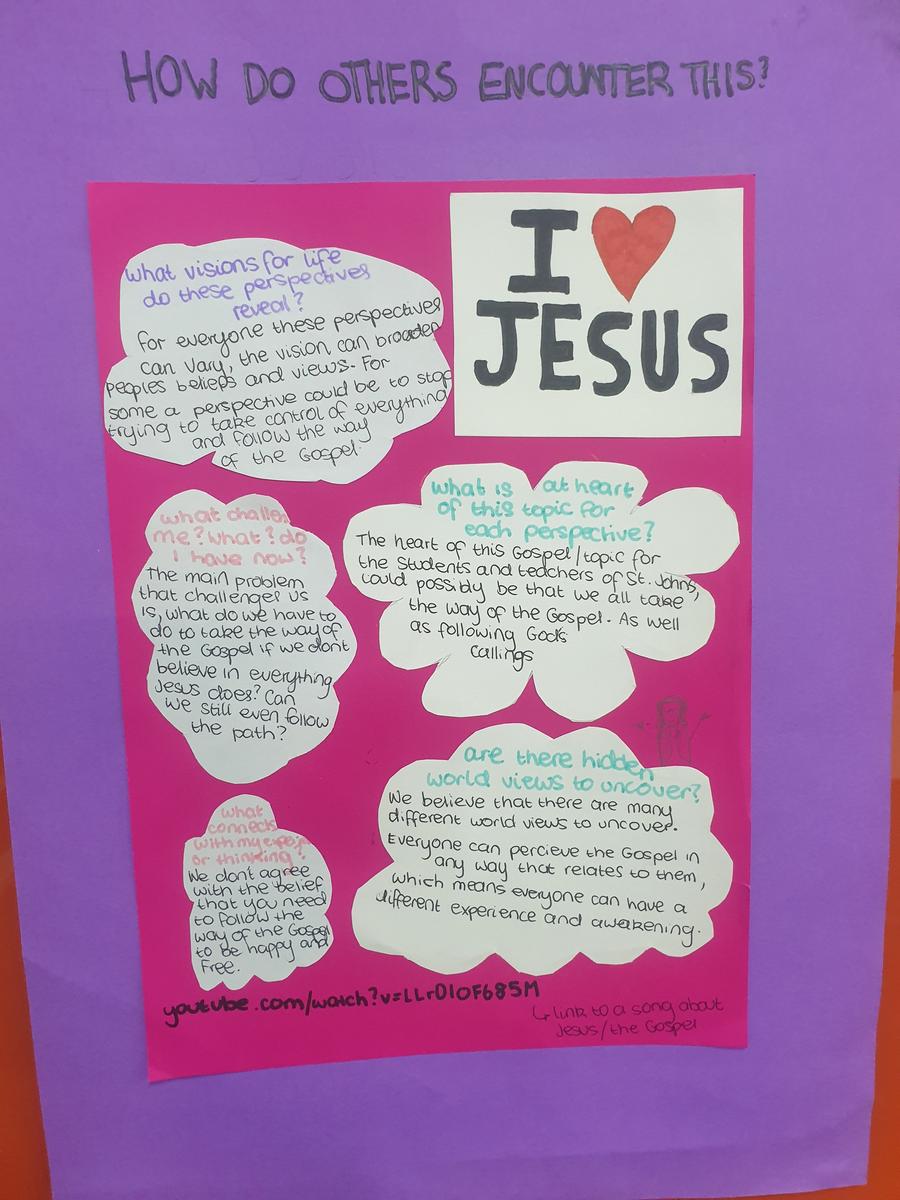 HOW DO OTHERS ENCOUNTER THIS?
I ❤ JESUS
what visions for life
do these perspectives
reveal?
For everyone these perspectives
can vary, the vision can broaden
peoples beliefs and views. For
some a perspective could be to stop
trying to take control of everything
and follow the way
of the Gospel.
what is at heart
of this topic for
each perspective?
The heart of this Gospel/topic for
the students and teachers of St. Johns,
could possibly be that we all take
the way of the Gospel. As well
as following Gods
callings
what
me? what? do
I have now?
The main problem
that challenges us
is, what do we have to
do to take the way of
the Gospel if we dont
believe in everything
Jesus does? Can
we still even follow
the path?
are there hidden
world views to uncover?
We believe that there are many
different world views to uncover.
Everyone can percieve the Gospel in
any way that relates to them,
which means everyone can have a
different experience and awakening.
what
connects
with my
or thinking?
We dont agree
with the belief
that you need
to follow the
way of the Gospel
to be happy and
free.
youtube.com/watch?v=LLrDIOF685M
↳ link to a song about
Jesus/the Gospel